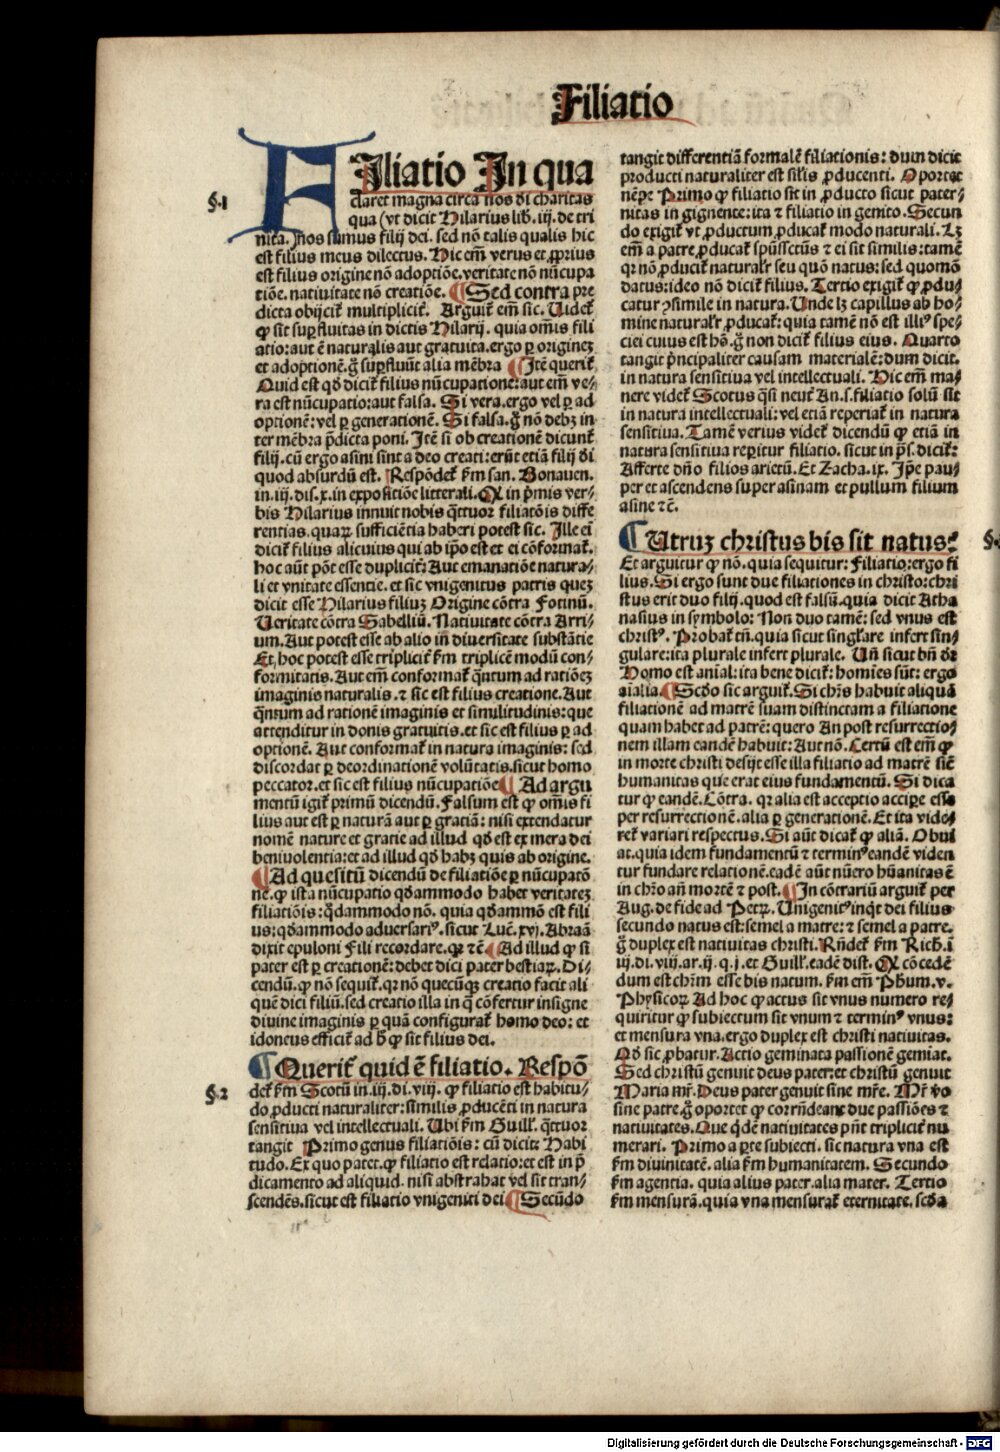 Filiatio
FIliatio In qua
§.1
claret magna circa nos dei charitas
qua (vt dicit Hilarius lib. iij. de tri
nita.) nos sumus filij dei. sed nō talis qualis hic
est filius meus dilectus. Hic em̄ verus et ꝓprius
est filius origine nō adoptiōe. veritate nō nūcupa
tiōe. natiuitate nō creatiōe. ¶ Sed contra pre
dicta obijcit̄ multiplicit̄. Arguit̄ em̄ sic. Uidet̄
ꝙ sit suꝑfluitas in dictis Hilarij. quia om̄is fili
atio: aut ē naturalis aut gratuita. ergo ꝑ originez
et adoptionē. g̊ suꝑfluūt alia mēbra ¶ Itē querit̄
Quid est qd̄ dicit̄ filius nūcupatione: aut em̄ ve-
ra est nūcupatio: aut falsa. Si vera. ergo vel ꝑ ad
optionē: vel ꝑ generationē. Si falsa. g̊ nō debz in
ter mēbra p̄dicta poni. Itē si ob creationē dicunt̄
filij. cū ergo asini sint a deo creati: erūt etiā filij dei
quod absurdū est. Respōdet̄ ẜm san. Bonauen.
in. iij. dis. x. in expositiōe litterali. Q in p̄mis ver-
bis Hilarius innuit nobis q̄ttuor filiatōis diffe
rentias. quaꝝ sufficiētia haberi potest sic. Ille ei
dicit̄ filius alicuius qui ab ip̄o est et ei cōformat̄.
hoc aūt pōt esse duplicit̄: Aut emanatiōe natura-
li et vnitate essentie. et sic vnigenitus patris quez
dicit esse Hilarius filiuz Origine cōtra Fotinū.
Ueritate cōtra Sabelliū. Natiuitate cōtra Arri-
um. Aut potest esse ab alio in diuersitate substātie
Et hoc potest esse triplicit̄ ẜm triplicē modū con-
formitatis. Aut em̄ conformat̄ q̄ntum ad ratiōez
imaginis naturalis. ⁊ sic est filius creatione. Aut
q̄ntum ad rationē imaginis et similitudinis: que
attenditur in donis gratuitis. et sic est filius ꝑ ad
optionē. Aut conformat̄ in natura imaginis: sed
discordat ꝑ deordinationē volūtatis. sicut homo
peccator. et sic est filius nūcupatiōe ¶ Ad argu
mentū igit̄ primū dicendū. Falsum est ꝙ om̄is fi
lius aut est ꝑ naturā aut ꝑ gratiā: nisi extendatur
nomē nature et gratie ad illud qd̄ est ex mera dei
beniuolentia: et ad illud qd̄ habz quis ab origine.
¶ Ad quesitū dicendū de filiatiōe ꝑ nūcupatō
nē. ꝙ ista nūcupatio qd̄ammodo habet veritatez
filiatiōis: q̄dammodo nō. quia qd̄ammō est fili
us: qd̄ammodo aduersariꝰ. sicut Luc̄. xvj. Abraā
dixit epuloni Fili recordare. qꝛ ⁊c̄ ¶ Ad illud ꝙ si
pater est ꝑ creationē: debet dici pater bestiaꝝ. Di-
cendū. ꝙ nō sequit̄. qꝛ nō quecūqꝫ creatio facit ali
quē dici filiū. sed creatio illa in q̄ cōfertur insigne
diuine imaginis ꝑ quā configurat̄ homo deo: et
idoneus efficit̄ ad h̄ ꝙ sit filius dei.
¶ Querit̄ quid ē filiatio. Respō
§.2
det̄ ẜm Scotū in. iij. di. viij. ꝙ filiatio est habitu-
do ꝓducti naturaliter: similis ꝓducēti in natura
sensitiua vel intellectuali. Ubi ẜm Guilł. q̄ttuor
tangit Primo genus filiatiōis: cū dicit: Habi
tudo. Ex quo patet. ꝙ filiatio est relatio: et est in p̄
dicamento ad aliquid. nisi abstrahat vel sit tran-
scendēs. sicut est filiatio vnigeniti dei ¶ Secūdo
tangit differentiā formalē filiationis: dum dicit
producti naturaliter est sil̄is ꝓducenti. Oportet
nēpe Primo ꝙ filiatio sit in ꝓducto sicut pater-
nitas in gignente: ita ⁊ filiatio in genito. Secun
do exigit̄ vt ꝓductum ꝓducat̄ modo naturali. Lz
em̄ a patre ꝓducat̄ spūssctūs ⁊ ei sit similis: tamē
qꝛ nō ꝓducit̄ naturalr̄ seu quō natus: sed quomō
datus: ideo nō dicit̄ filius. Tertio exigit̄ ꝙ ꝓdu-
catur ꝯsimile in natura. Unde lz capillus ab ho-
mine naturalr̄ ꝓducat̄: quia tamē nō est illiꝰ spe-
ciei cuius est hō. g̊ non dicit̄ filius eius. Quarto
tangit p̄ncipaliter causam materialē: dum dicit.
in natura sensitiua vel intellectuali. Hic em̄ ma-
nere videt̄ Scotus q̄si neut̄ An. s. filiatio solū sit
in natura intellectuali: vel etiā reperiat̄ in natura
sensitiua. Tamē verius videt̄ dicendū ꝙ etiā in
natura sensitiua reꝑitur filiatio. sicut in p̄s. dicit̄:
Afferte dn̄o filios arietū. Et Zacha. ix. Ip̄e pau-
per et ascendens super asinam et pullum filium
asine ⁊c̄.
¶ Utruz christus bis sit natus?
Et arguitur ꝙ nō. quia sequitur: Filiatio: ergo fi
lius. Si ergo sunt due filiationes in christo: chri
stus erit duo filij. quod est falsū. quia dicit Atha
nasius in symbolo: Non duo tamē: sed vnus est
christꝰ. Probat̄ tn̄. quia sicut singlare infert sin-
gulare: ita plurale infert plurale. Un̄ sicut bn̄ dr̄
Homo est aīal: ita bene dicit̄: homīes sūt: ergo
aīalia. ¶ Scdo sic arguit̄. Si chr̄s habuit aliquā
filiationē ad matrē suam distinctam a filiatione
quam habet ad patrē: quero An post resurrectio-
nem illam eandē habuit: Aut nō. Certū est em̄ ꝙ
in morte christi desijt esse illa filiatio ad matrē sic̄
humanitas que erat eius fundamentū. Si dica
tur ꝙ eandē. Cōtra. qꝛ alia est acceptio acciꝑe esse
per resurrectionē. alia ꝑ generationē. Et ita vide-
ret̄ variari respectus. Si aūt dicat̄ ꝙ aliā. Obui
at. quia idem fundamentū ⁊ terminꝰ eandē viden
tur fundare relationē. eadē aūt nūero hūanitas ē
in chr̄o an̄ mortē ⁊ post. ¶ In cōtrariū arguit̄ per
Aug. de fide ad Petꝝ. Unigenitꝰ inqt̄ dei filius
secundo natus est: semel a matre: ⁊ semel a patre.
g̊ duplex est natiuitas christi. Rn̄det̄ ẜm Rich. ī
iij. di. viij. ar. ij. q. j. et Guilł. eadē dist. Q cōcedē
dum est chr̄m esse bis natum. ẜm em̄ Ph̄um. v.
Physicoꝝ Ad hoc ꝙ actus sit vnus numero re-
quiritur ꝙ subiectum sit vnum ⁊ terminꝰ vnus:
et mensura vna. ergo duplex est christi natiuitas.
Qd̄ sic ꝓbatur. Actio geminata passionē gemīat.
Sed christū genuit deus pater. et christū genuit
Maria mr̄. Deus pater genuit sine mr̄e. Mr̄ v̊o
sine patre. g̊ oportet ꝙ corrn̄deant due passiōes ⁊
natiuitates. Que q̄dē natiuitates pn̄t triplicit̄ nu
merari. Primo a ꝑte subiecti. sic natura vna est
ẜm diuinitatē. alia ẜm humanitatem. Secundo
ẜm agentia. quia alius pater. alia mater. Tertio
ẜm mensurā. quia vna mensurat̄ eternitate. scd̄a
Digitalisierung gefördert durch die Deutsche Forschungsgemeinschaft - DFG